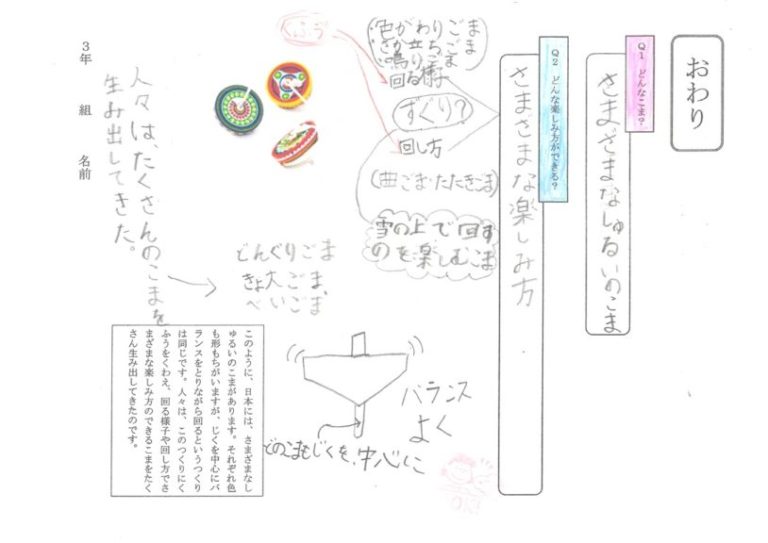 おわり
Q1 どんなこま？
さまざまなしゅるいのこま
Q2 どんな楽しみ方ができる？
さまざまな楽しみ方
色がわりごま
鳴りごま
さか立ちごま
回る様子
ずぐり？
回し方
(曲ごま・たたきごま)
雪の上で回す
のを楽しむこま
くふう
バランス
よく
どのこまもじくを、中心に
OK!
どんぐりごま
きょ大ごま、
べいごま
このように、日本には、さまざまなし
ゅるいのこまがあります。それぞれ色
も形もちがいますが、じくを中心にバ
ランスをとりながら回るというつくり
は同じです。人々は、このつくりにく
ふうをくわえ、回る様子や回し方でさ
まざまな楽しみ方のできるこまをたく
さん生み出してきたのです。
人々は、たくさんのこまを
生み出してきた。
3年 組 名前